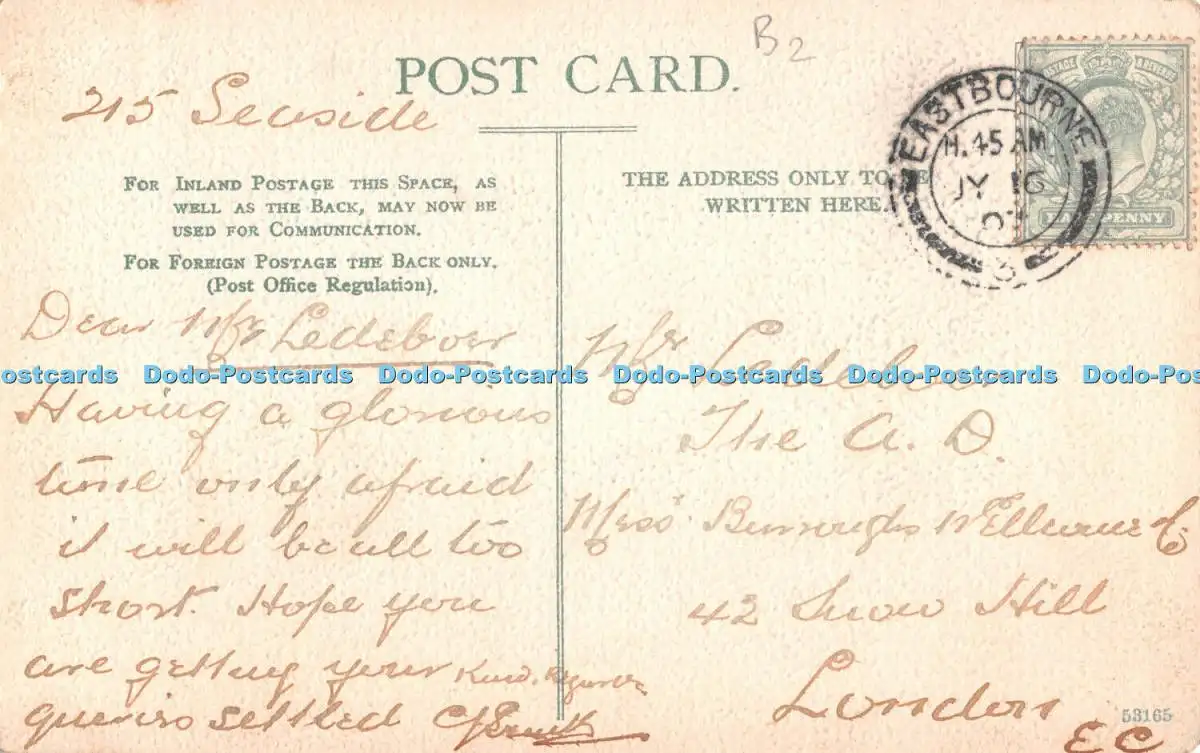 B2
POST CARD.
215 Seaside
FOR INLAND POSTAGE THIS SPACE, AS
WELL AS THE BACK, MAY NOW BE
USED FOR COMMUNICATION.
FOR FOREIGN POSTAGE THE BACK ONLY.
(Post Office Regulation).
Dear Mr Ledeboer
Having a glorious
time only afraid
it will be all too
short. Hope you
are getting your
queries settled
Kind. Regards
THE ADDRESS ONLY TO BE
WRITTEN HERE.
EASTBOURNE
11.45 AM
JY 16
07
3
POSTAGE & REVENUE
HALF PENNY
Mr Ledeboer
The A. D.
Mess Burroughs Wellcome Co
42 Snow Hill
London
E C
53165
Dodo-Postcards Dodo-Postcards Dodo-Postcards Dodo-Postcards Dodo-Postcards Dodo-Postcards